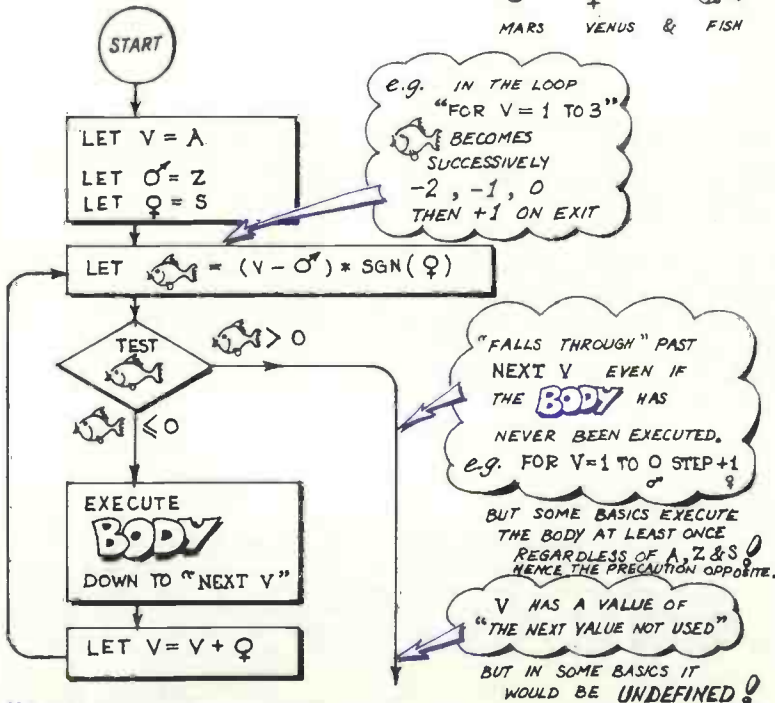 MARS VENUS & FISH
START
LET V = A
LET ♂ = Z
LET ♀ = S
e.g. IN THE LOOP
"FOR V = 1 TO 3"
BECOMES
SUCCESSIVELY
-2 , -1 , 0
THEN +1 ON EXIT
LET = (V - ♂) * SGN(♀)
TEST
> 0
≤ 0
"FALLS THROUGH" PAST
NEXT V EVEN IF
THE BODY HAS
NEVER BEEN EXECUTED.
e.g. FOR V=1 TO 0 STEP+1
♂ ♀
BUT SOME BASICS EXECUTE
THE BODY AT LEAST ONCE
REGARDLESS OF A, Z & S!
HENCE THE PRECAUTION OPPOSITE.
EXECUTE
BODY
DOWN TO "NEXT V"
LET V = V + ♀
V HAS A VALUE OF
"THE NEXT VALUE NOT USED"
BUT IN SOME BASICS IT
WOULD BE UNDEFINED!